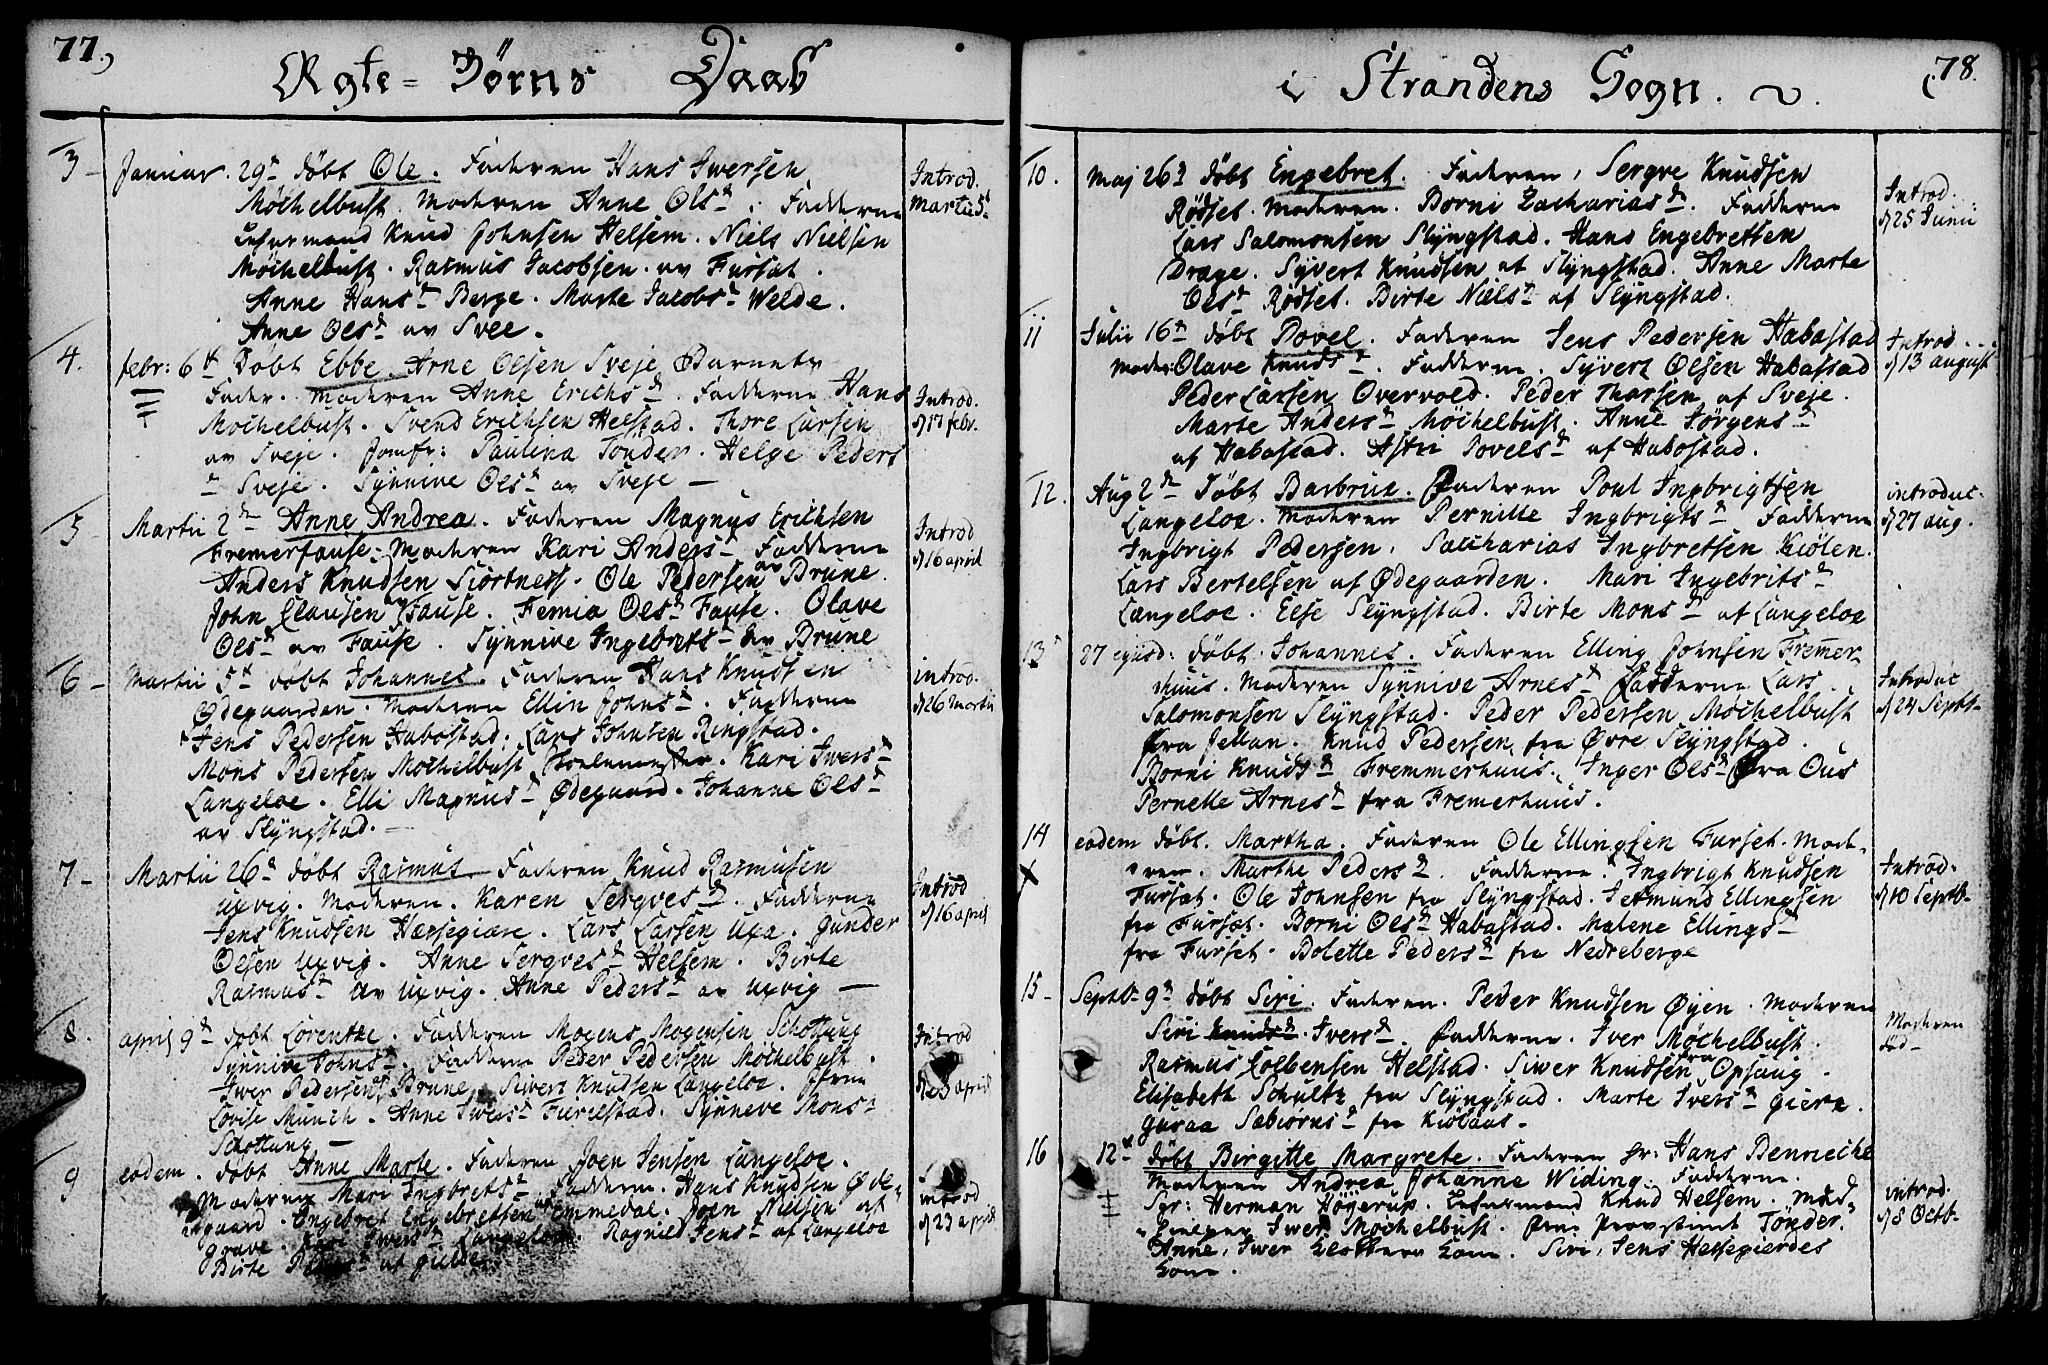 77.
Ægte-Börns Daab
3 - Januar. 29n döbt Ole. Faderen Hans Iwersen
Introd.
Möchelbust. Moderen Anne Olsd. Fadderne
Martii 5t
Knud Johnsen Helsem. Niels Nielsen
Möchelbust. Rasmus Jacobsen. av Fursæt.
Anne Hansd Berge. Marte Jacobsd Welde.
Anne Olsd av Svee.
4. febr: 6th Döbt Ebbe. Arne Olsen Sveje Barnets
Fader. Moderen Anne Erichsd. Fadderne Hans
Introd.
Möchelbust. Svend Erichsen Helstad. Thore Larsen
d 17 febr.
av Sveje. Jomfr: Paulina Tönder. Helge Peders
d Sveje. Synnive Olsd av Sveje —
5 Martii 2den Anne Andrea. Faderen Magnus Erichsen
Introd
Fremerfause. Moderen Kari Andersd Fadderne
d 16 april
Anders Knudsen Siortness. Ole Pedersen av Brune.
John Clausen av Fause. Femia Olsd Fause. Olave
Olsd av Fause. Synnive Ingebretsd av Brune
6 - Martii 5th döbt Johannes. Faderen Hans Knudsen
introd.
Ødegaarden. Moderen Ellin Johnsd. Fadderne
d 26 Martii
Jens Pedersen Habostad. Lars Johnsen Ringstad.
Mons Pedersen Möchelbust Skolemester. Kari Iwersd
Langeloe. Elli Magnusd Ødegaard. Johanne Olsd
av Slyngstad. —
7 - Martii 26d döbt Rasmus. Faderen Knud Rasmusen
Introd
Uxvig. Moderen. Karen Sergvesd. Fadderne
d 16 april
Jens Knudsen Hæssegiære. Lars Larsen Uxa. Gunder
Olsen Uxvig. Anne Sergvesd Helsem. Birte
Rasmusd av Uxvig. Anne Pedersd av Uxvig —
8. april 9d döbt Lorentze. Fadderen Mogens Mogensen Schottung
Introd
Synnive Johnsd. Fadderne Peder Pedersen Möchelbust.
Iwer Pedersen af Brune. Sivert Knudsen Langeloe.
d 23 april
Lovise Munch. Anne Iwersd Furilstad. Synneve Monsd
Schottung —
9 eodem. döbt Anne Marte. Faderen Joen Jensen Langeloe.
Moderen Mari Ingbretsd Fadderne. Hans Knudsen Øde-
introd
gaard. Ingebret Engebretsen Emmedal. Joen Nielsen af
d 23 april
Grave. Iwersd Langeloe. Ragnild Jensd af Langeloe
Birte
78.
i Strandens Sogn.
10. Maj 26d Döbt Engebret. Faderen, Sergve Knudsen
Introd.
Rödset. Moderen. Borni Zachariasd. Fadderne
d 25 Junii
Lars Salomonsen Slyngstad. Hans Engebretsen
Drage. Syvert Knudsen af Slyngstad. Anne Marte
Olsd Rödset. Birte Nielsd af Slyngstad.
11 Julii 16n döbt Povel. Faderen Jens Pedersen Habastad
Introd.
Moder: Olave Knudsd. Fadderne. Syvert Olsen Habastad
d 13 august
Peder Larsen Overvold. Peder Thorsen af Sveje.
Marte Andersd Möchelbust. Anne Jörgensd
af Habastad. Astri Povelsd af Habostad.
12. Aug 2den Döbt Barbrue. Faderen Poul Ingbrigtsen
introduc.
Langeloe. Moderen Pernille Ingbrigtsd Fadderne
d 27 aug.
Ingbrigt Pedersen. Sacharias Ingbretsen Kiölen.
Lars Bertelsen af Ødegaarden. Mari Ingebritsd
Langeloe. Else Slyngstad. Birte Monsd af Langeloe
13 27 ejusd: döbt Johannes. Faderen Elling Johnsen Fremmer-
Introduc
huus. Moderen Synnive Arnesd Fadderne Lars
d 24 Septb-
Salomonsen Slyngstad. Peder Pedersen Möchelbust
fra Jettan. Knud Pedersen fra Øvre Slyngstad.
Borni Knudsd Fremmerhuus. Inger Olsd fra Ous
Pernelle Arnesd fra Fremerhuus.
14 eodem döbt. Martha. Faderen Ole Ellingsen Furset. Mode-
ren. Marthe Pedersd. Fadderne. Ingbrigt Knudsen
Introd.
Fursæt. Ole Johnsen fra Slyngstad. Jetmund Ellingsen
d 10 Septb-
fra Fursæt. Borni Olsd Habastad. Malene Ellingsd
fra Furset. Bolette Pedersd fra Nedreberge
15 - Septb- 9d döbt Siri. Faderen. Peder Knudsen Øyen. Moderen
Moderen
Siri Knudsd Iversd. Fadderne. Iver Möchelbust.
död -
Rasmus Colbensen Helstad. Siwer Knudsen fra Opsaug.
Elisabeth Schultz fra Slyngstad. Marte Iversd Giere.
Guraa Sæbiörnsd fra Kiölaas.
16 12th döbt Birgitte Margrete. Faderen Hr: Hans Benneche
Moderen Andrea Johanne Widing. Fadderne.
introd.
Sgr: Herman Höyerup. Knud Helsem.
d 8 Octb-
Iwer Möchelbust. Tönder.
Anne, Iwer Kone. Siri, Jens Hessegierdes
Kone.